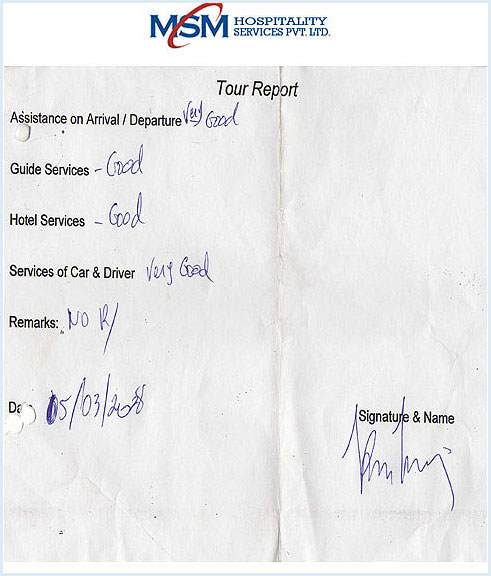 MSM HOSPITALITY
SERVICES PVT. LTD.
Tour Report
Assistance on Arrival / Departure Very Good
Guide Services - Good
Hotel Services - Good
Services of Car & Driver Very Good
Remarks: NO R/
Da 05/03/2008
Signature & Name